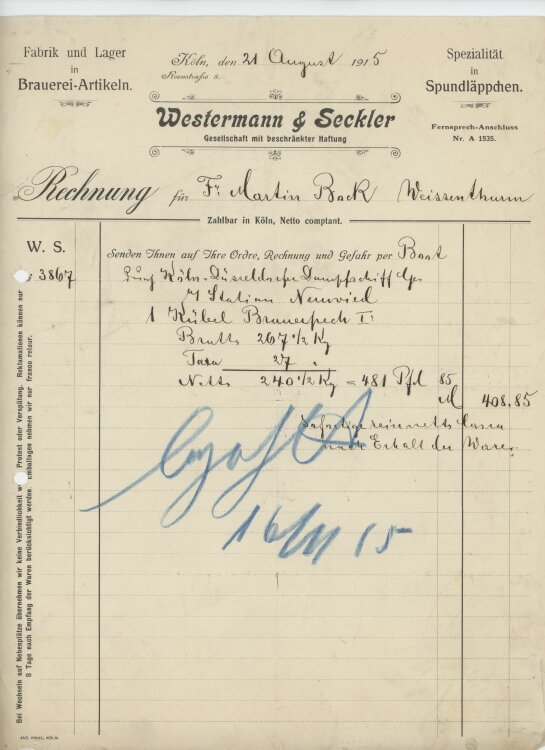 Fabrik und Lager
in
Brauerei-Artikeln.
Köln, den 21 August 1915
Roonstraße 8.
Spezialität
in
Spundläppchen.
Fernsprech-Anschluss
Nr. A 1535.
Westermann & Seckler
Gesellschaft mit beschränkter Haftung
Rechnung für Fr. Martin Bock Weissenthurm
Zahlbar in Köln, Netto comptant.
W. S.
Senden Ihnen auf Ihre Ordre, Rechnung und Gefahr per Boot
3867
Köln-Düsseldorfer Dampfschiff Ges
Station Neuwied
1 Kübel Brauerpech I
Brutto 267 1/2 Kg
Tara 27 "
Netto 240 1/2 Kg = 481 Pfd 85
M 408.85
rein netto Cassa
nach Erhalt der Ware.
16/11 15
Bei Wechseln auf Nebenplätze übernehmen wir keine Verbindlichkeit Protest oder Verspätung. Reklamationen können nur
8 Tage nach Empfang der Waren berücksichtigt werden. emballagen nehmen wir nur franco retour.